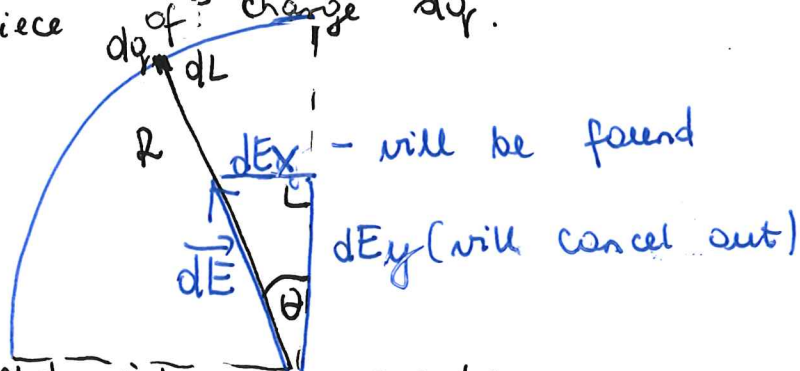 iece of: charge dq.
dq dL
R
dEx - will be found
dEy (will cancel out)
dE
θ